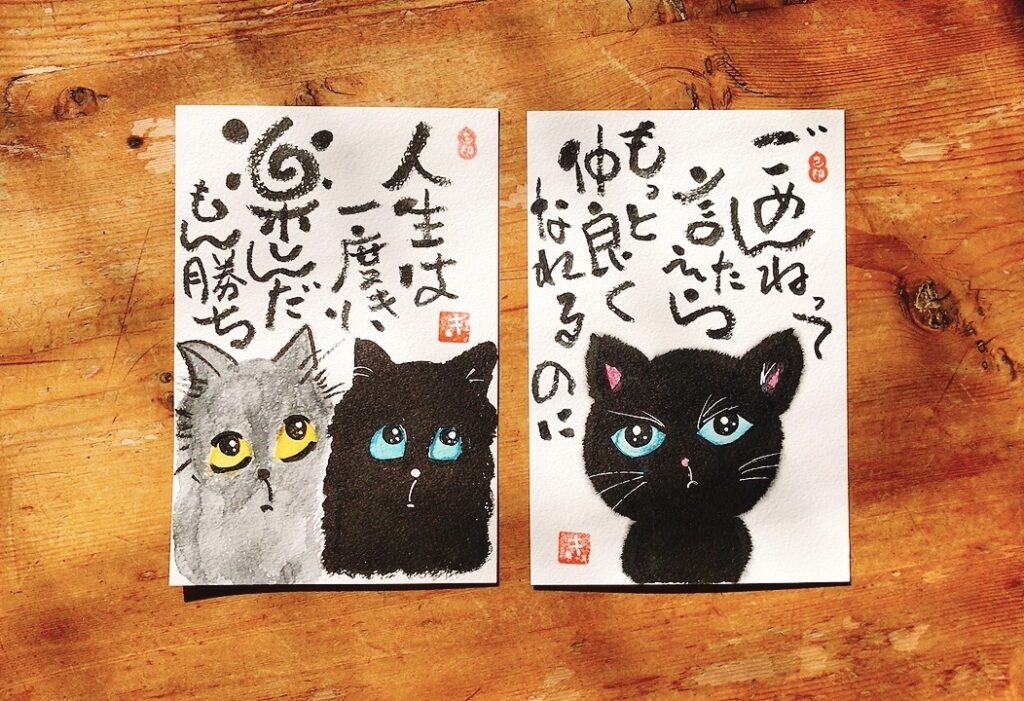 人生は
一度きり
楽しんだ
もん勝ち
き
ごめんねって
言えたら
もっと
仲良く
なれるのに
き